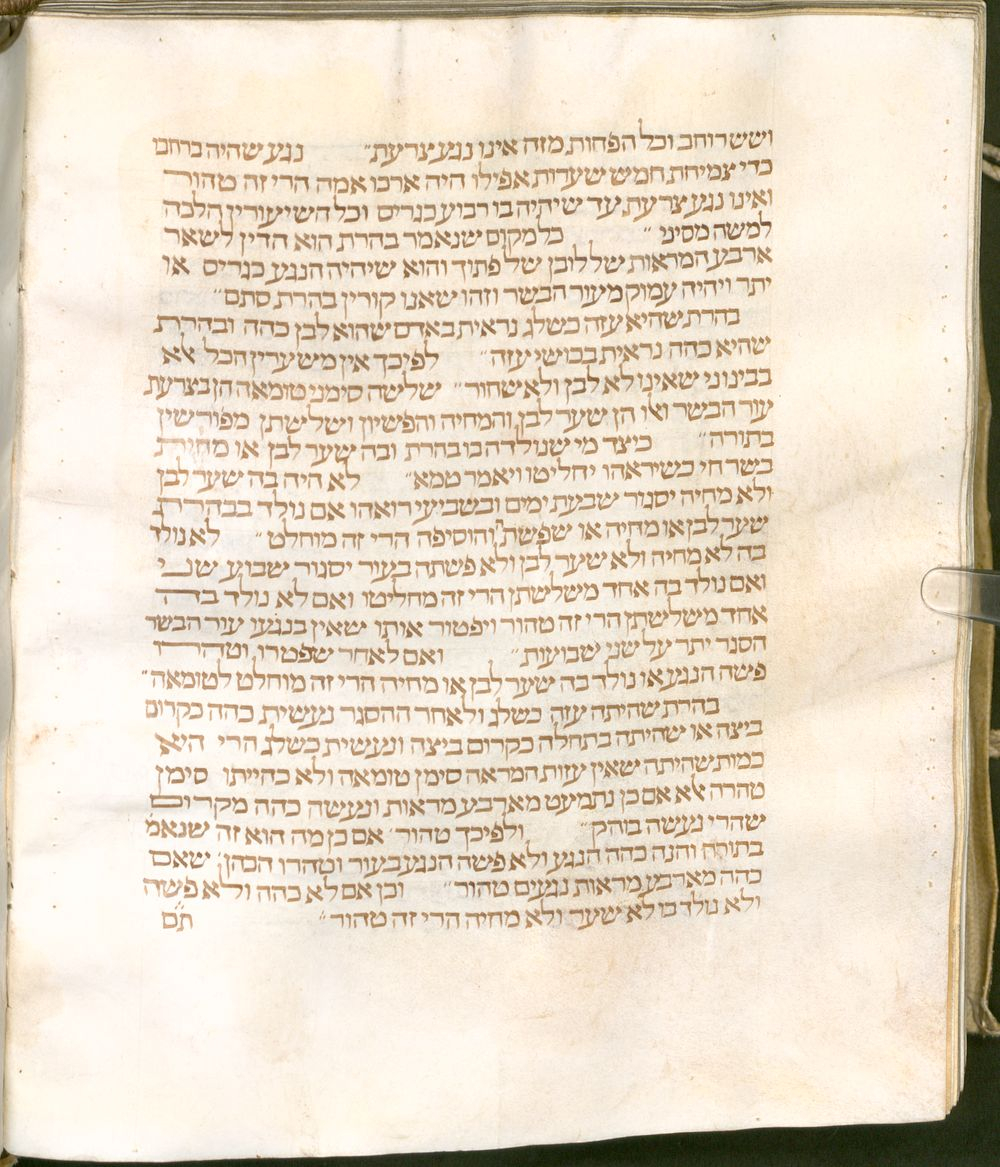 ושש רוחב וכל הפחות מזה אינו נגע צרעת״ נגע שהיה ברחבו
כדי צמיחת חמש שערות אפילו היה ארכו אמה הרי זה טהור
ואינו נגע צרעת עד שיהיה בו רבוע כגריס וכל השיעורין הלכה
למשה מסיני ״ כל מקום שנאמר בהרת הוא הדין לשאר
ארבע המראות של לובן של פתוך והוא שיהיה הנגע כגריס או
יתר ויהיה עמוק מעור הבשר וזהו שאנו קורין בהרת סתם״
בהרת שהיא עזה כשלג נראית באדם שהוא לבן כהה ובהרת
שהיא כהה נראית בכושי עזה״ לפיכך אין משערין הכל אלא
בבינוני שאינו לא לבן ולא שחור״ שלישה סימני טומאה הן בצרעת
עור הבשר ואלו הן שער לבן והמחיה והפשיון ושלישתן מפורשין
בתורה״ כיצד מי שנולדה בו בהרת ובה שער לבן או מחית
בשר חי כשיראהו יחליטו ויאמר טמא״ לא היה בה שער לבן
ולא מחיה יסגור שבעת ימים ובשביעי רואהו אם נולד בבהרת
שער לבן או מחיה או שפשת והוסיפה הרי זה מוחלט ״ לא נולד
בה לא מחיה ולא שער לבן ולא פשתה בעור יסגור שבוע שני
ואם נולד בה אחד משלשתן הרי זה מחליטו ואם לא נולד בה
אחד משלשתן הרי זה טהור ויפטור אותו שאין בנגעי עור הבשר
הסגר יתר על שני שבועות״ ואם לאחר שפטרו וטהרו
פשה הנגע או נולד בה שער לבן או מחיה הרי זה מוחלט לטומאה״
בהרת שהיתה עזה כשלג ולאחר ההסגר נעשית כהה כקרום
ביצה או שהיתה בתחלה כקרום ביצה ונעשית כשלג הרי היא
כמות שהיתה שאין עזות המראה סימן טומאה ולא כהייתו סימן
טהרה אלא אם כן נתמעט מארבע מראות ונעשה כהה מקרום
שהרי נעשה בוהק״ ולפיכך טהור׳ אם כן מה הוא זה שנאמ
בתורה והנה כהה הנגע ולא פשה הנגע בעור וטהרו הכהן׳ שאם
כהה מארבע מראות נגעים טהור״ וכן אם לא כהה ולא פשה
ולא נולד בו לא שער ולא מחיה הרי זה טהור״ תם